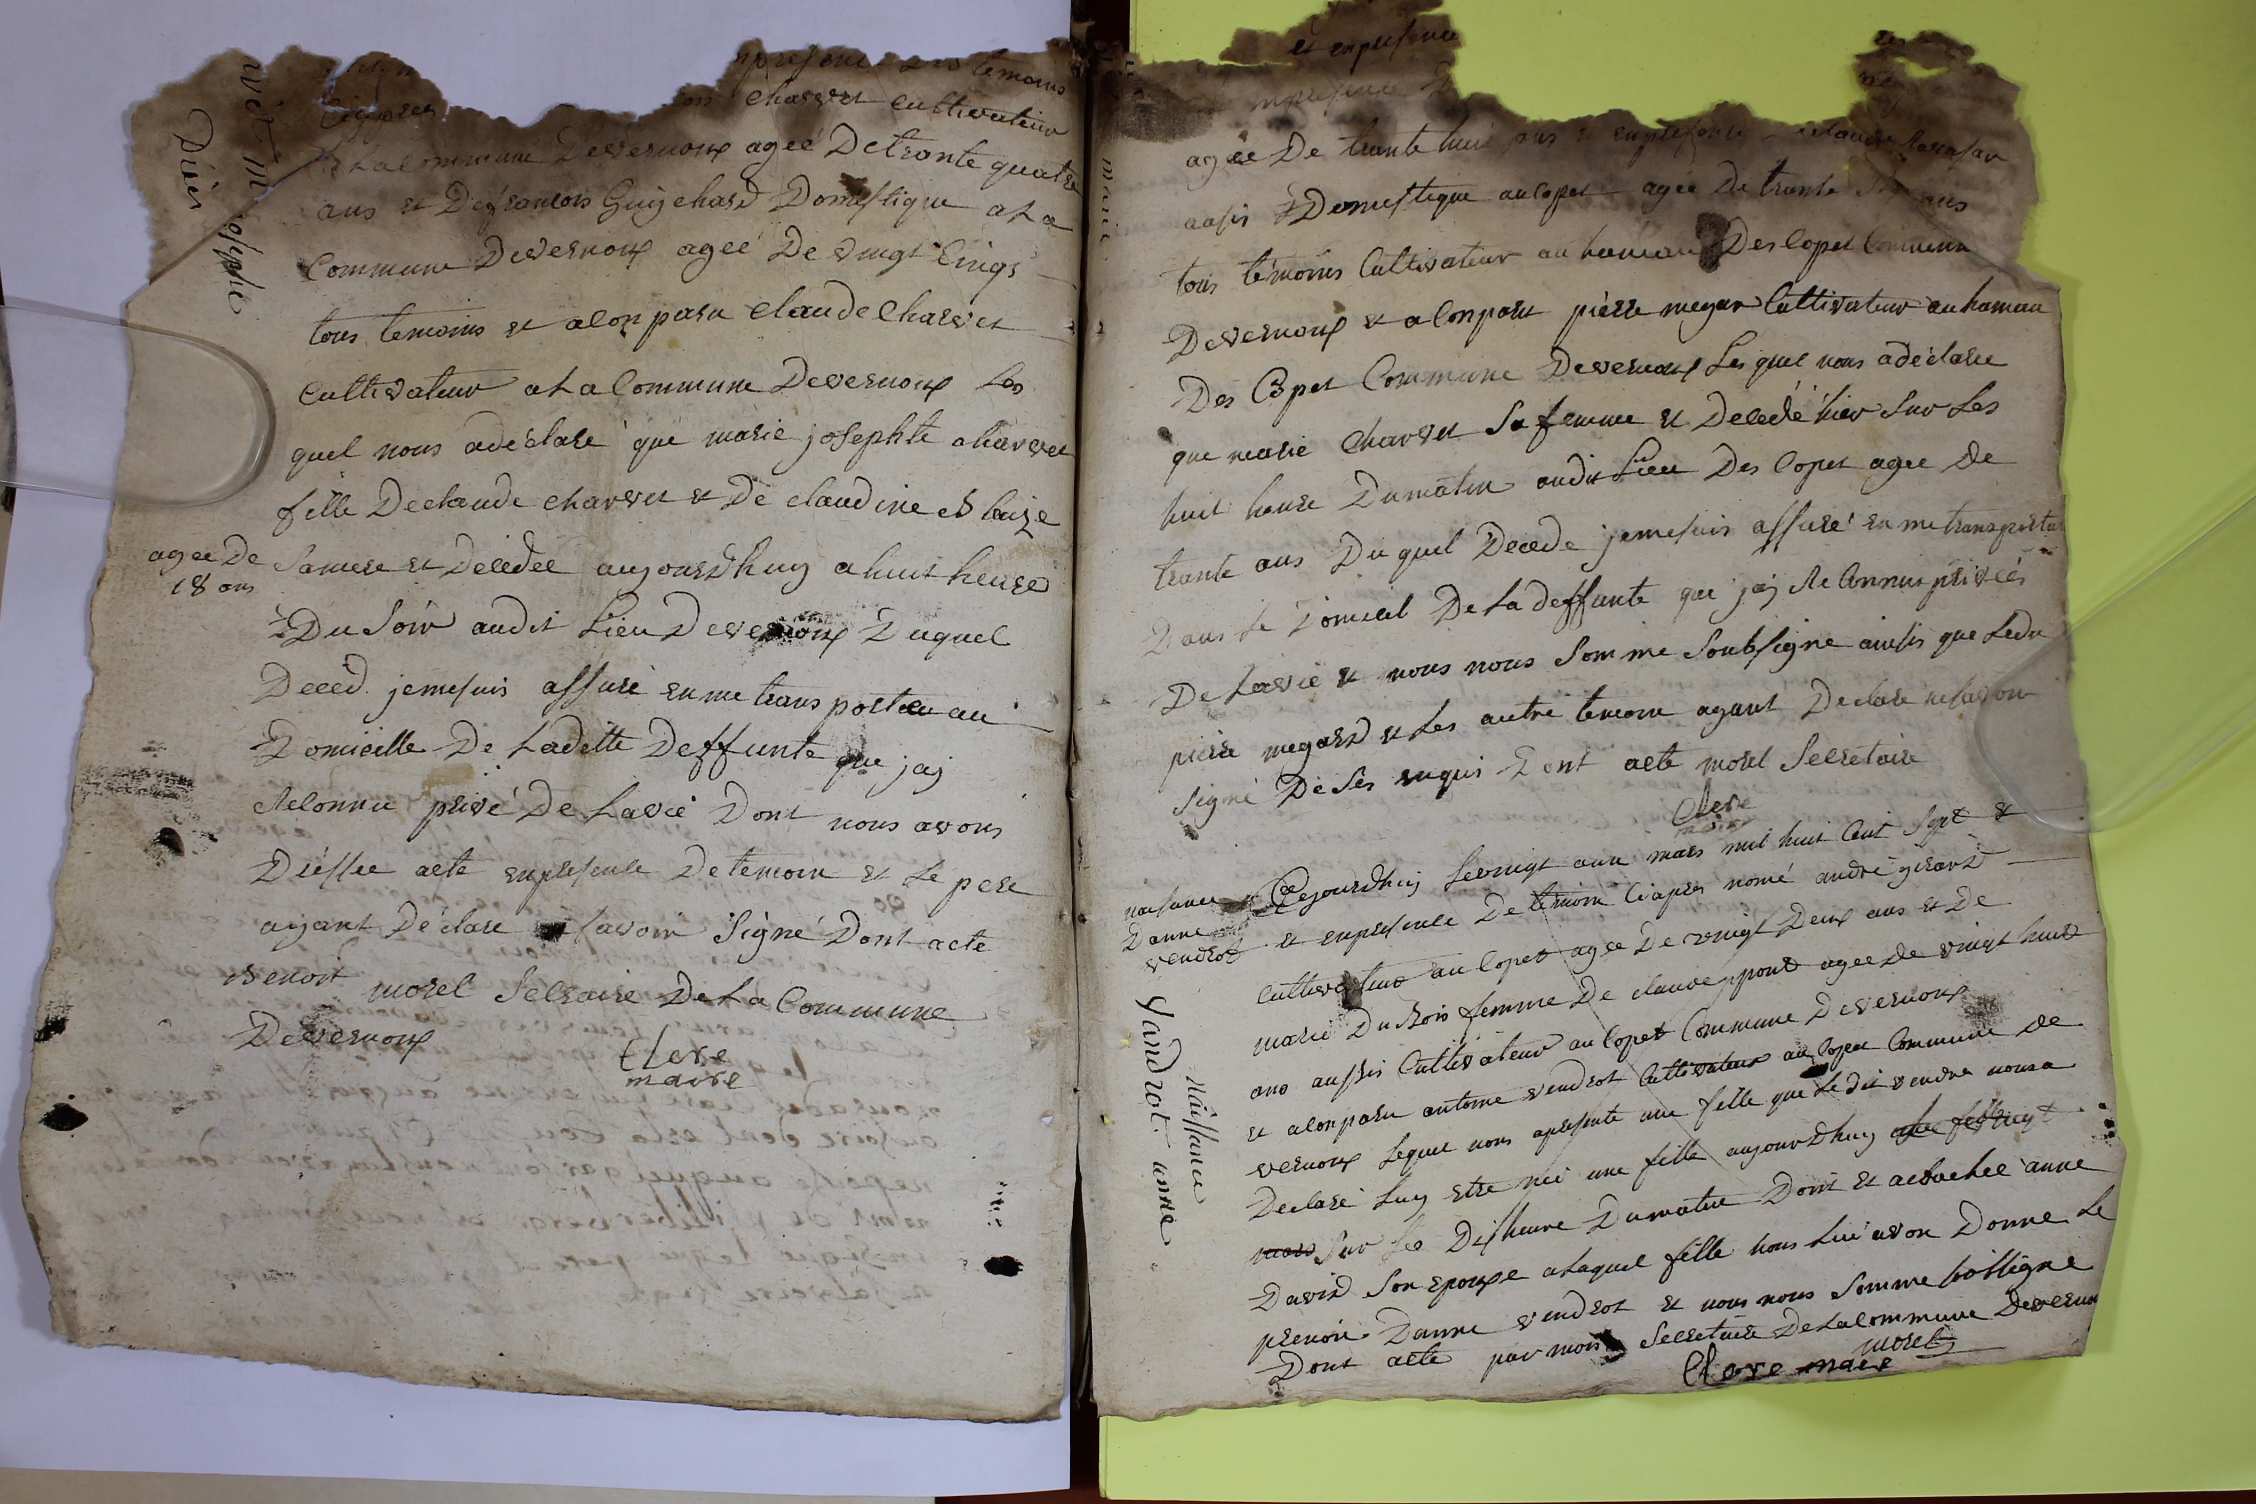 Décès
josephte
en presence des temoins
Ciapres
Charvet Cultivateur
a La Commune Devernoux ageé Detrante quatre
ans et De francois Guychard Domestique a La
Commune Devernoux ageé De vingt Cinqs
tous temoins et a Conparu Claude Charvet
Cultivateur a La Commune Devernoux Les
quel nous a déclaré que marie josephte charvet
fille De claude charvet et De claudine Blaize
agee De 18 ans
Samere et Décédeé aujourdhuy a huit heure
Du Soir audit Lieu Devernoux Duquel
Deced. jemesuis assuré en me trans portan au
Domicille De Ladette Deffunte que jaÿ
Reconnu privé De Lavie Dont nous avons
Dressee acte enpresence De temoin et Le pere
ayant Déclaré savoir Signé Dont acte
Benoit morel Secraire De La Commune
Devernoux
Clere
maire
et enpresence
enpresence
ageé De trante huit ans et enpresence claude
aussi Domestique au Copet ageé De trante ans
tous témoins Cultivateur au hameau Des Copet Commune
Devernoux et a Conparu pierre megar Cultivateur au hamau
Des Copet Commune Devernoux Les quel nous a déclaré
que marie Charvet Sa femme et Decedé hier Sur Les
huit heure Dumatin audit Lieu Des Copet agee De
trante ans Du quel Decede jemesuis assuré en me transportan
Dans Le Domicil De La deffunte que jaj Reconnus privéés
De Lavie et nous nous Somme Soubsigne ainsis que Ledit
piere megard et Les autre temoin ayant Declare ne savoir
signé De Ses enquis Dont acte morel Secretaire
Clere
maire
naisance
Danne
vendrot
Cejourdhuy Levingt aun mars mil huit Cent Sept et
et enpresence De temoin Ciapres nomé andré girard
Cultivateur au Copet agee De vingt Deux ans et De
marie Dubois femme De claude ppont agee De vingt huit
ans aussis Cultivateur au Copet Commune Devernoux
et a Conparu antoine vendrot Cultivateur au Copet Commune De
vernoux Lequel nous apresente une fille que Le dit vendre nous a
Declaré Luy etre néé une fille aujourdhuy
mars Sur Les Dix heure Dumatin Dont et acouchée anne
David Son Epouze a Laquel fille nous Lui avon Donne Le
prenon Danne vendrot et nous nous Somme sousigne
Dont acte par mois Secretaire De La Commune Devernou
morel
Clere maire
Naissance
Vandrot anne